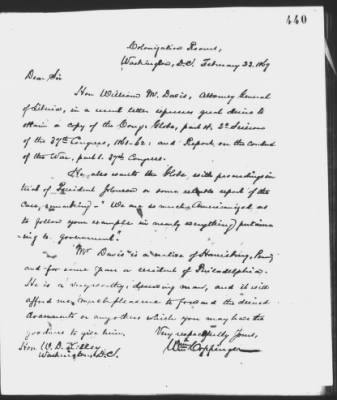 440
Colonization Rooms,
Washington, D.C. February 23. 1869
Dear Sir
Hon William M. Davis, Attorney General
of Liberia, in a recent letter expresses great desire to
obtain a copy of the Cong: Globe, part 4, 2d Session
of the 37th Congress, 1861-62: and Report on the conduct
of the War, part 1. 37th Congress.
He also wants the Globe, with proceedings in
trial of President Johnson or some reliable report of the
case, remarking - "We are so much Americanized as
to follow your example in nearly everything pertain-
ing to government."
Mr Davis is a native of Harrisburg, Penn
and for some years a resident of Philadelphia.
He is a very worthy, deserving man, and it will
afford me much pleasure to forward the desired
documents or any others which you may have the
goodness to give him.
Very respectfully Yours,
Wm Coppinger
Hon W. D. Kelley
Washington, D.C.